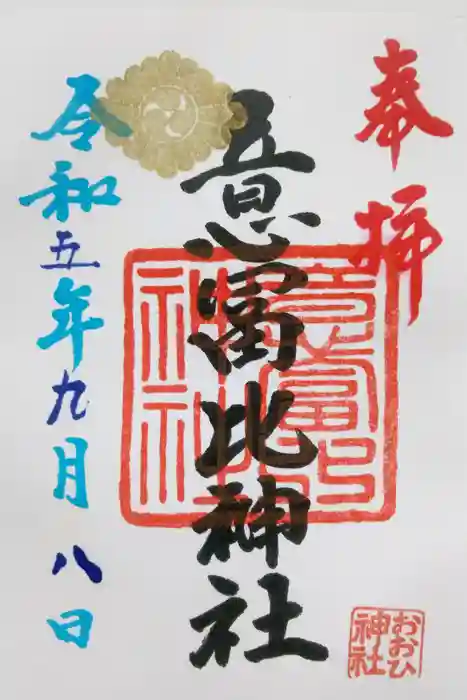 奉拝
意富比神社
意富比
神社
令和五年九月八日
おおひ
神社